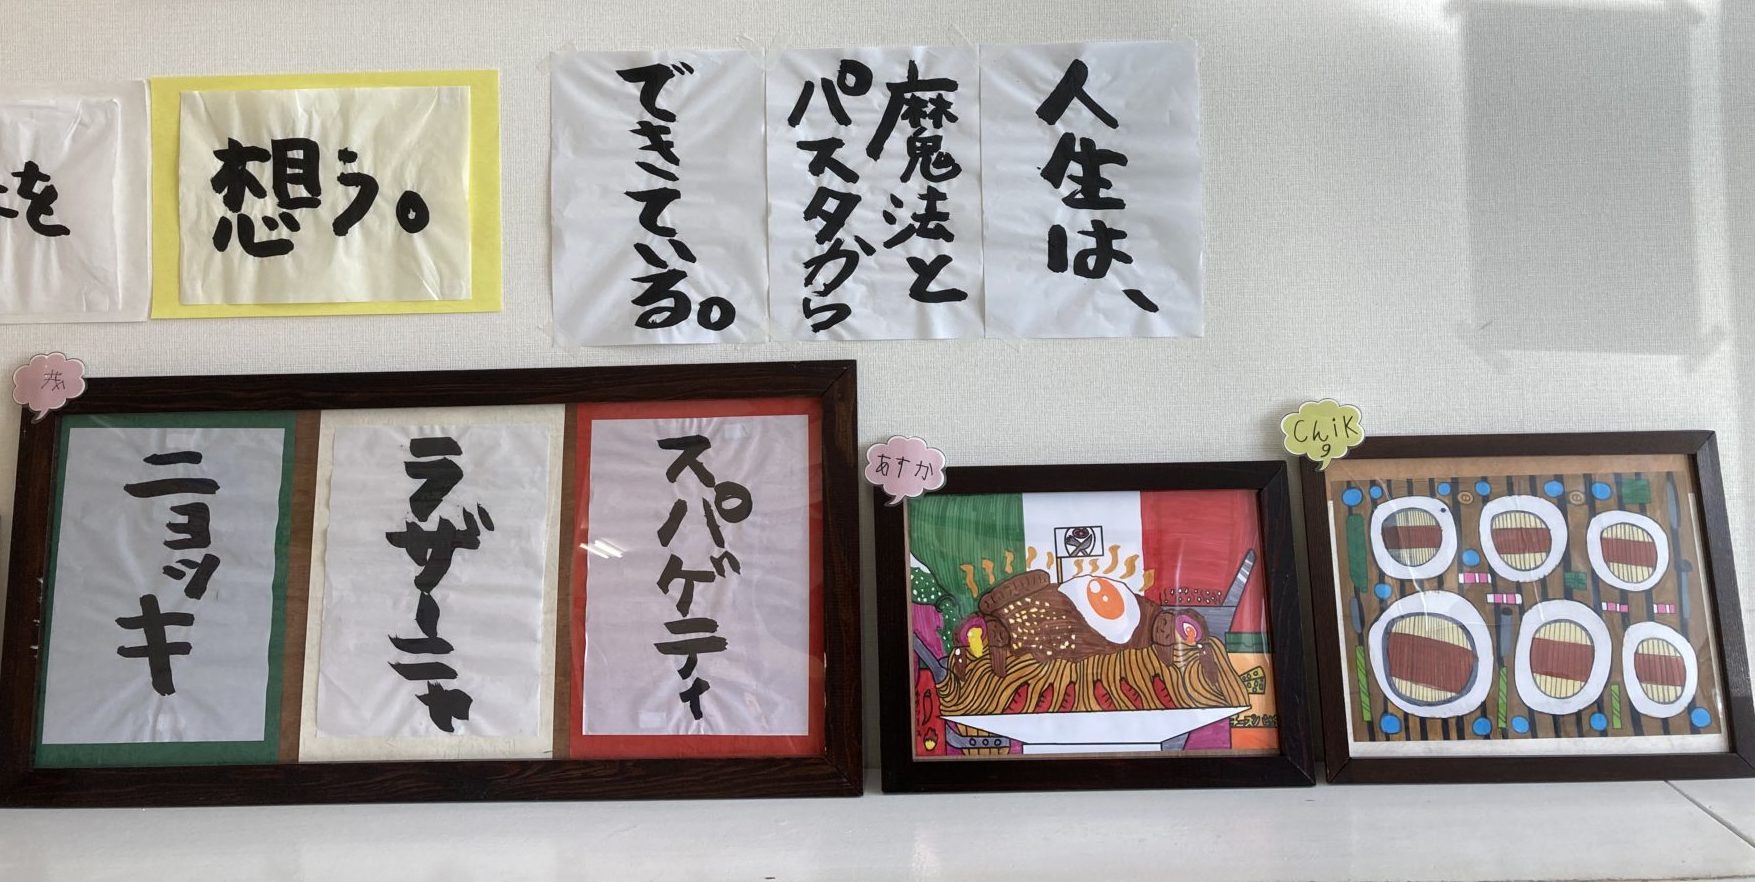 を
想う。
人生は、
魔法と
パスタから
できている。
スパゲティ
ラザーニャ
ニョッキ
あすか
ChiK